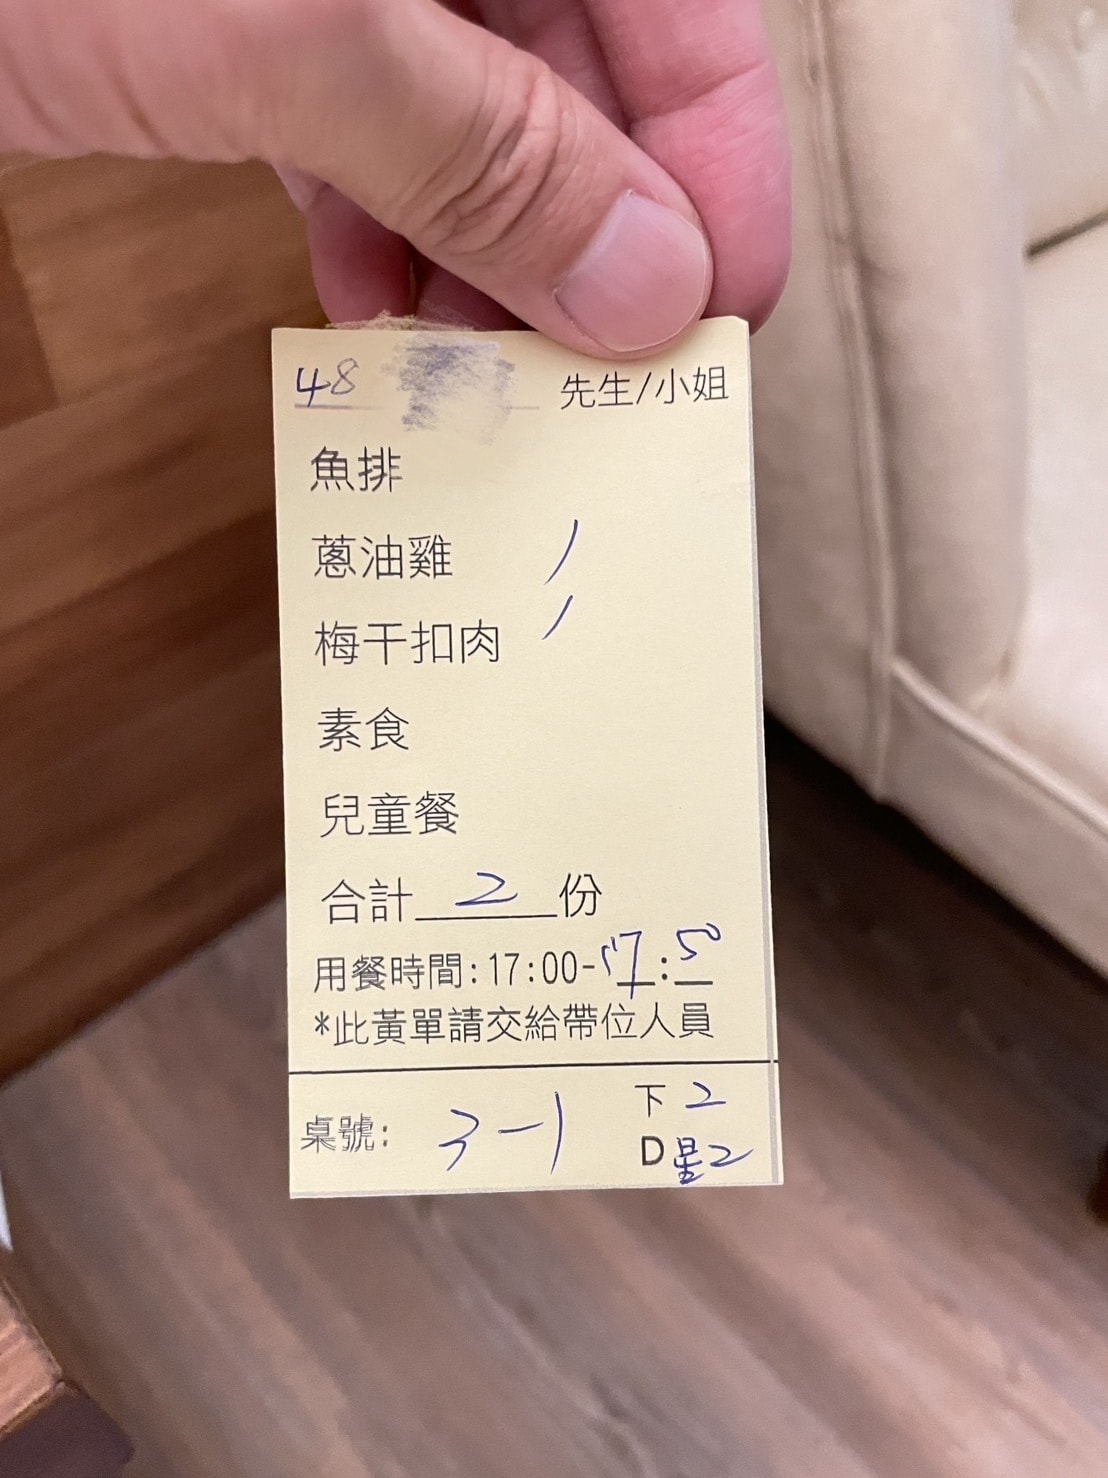 48 先生/小姐
魚排
蔥油雞 /
梅干扣肉 /
素食
兒童餐
合計 2 份
用餐時間:17:00-17:50
*此黃單請交給帶位人員
桌號: 3-1
下 2
D 星2